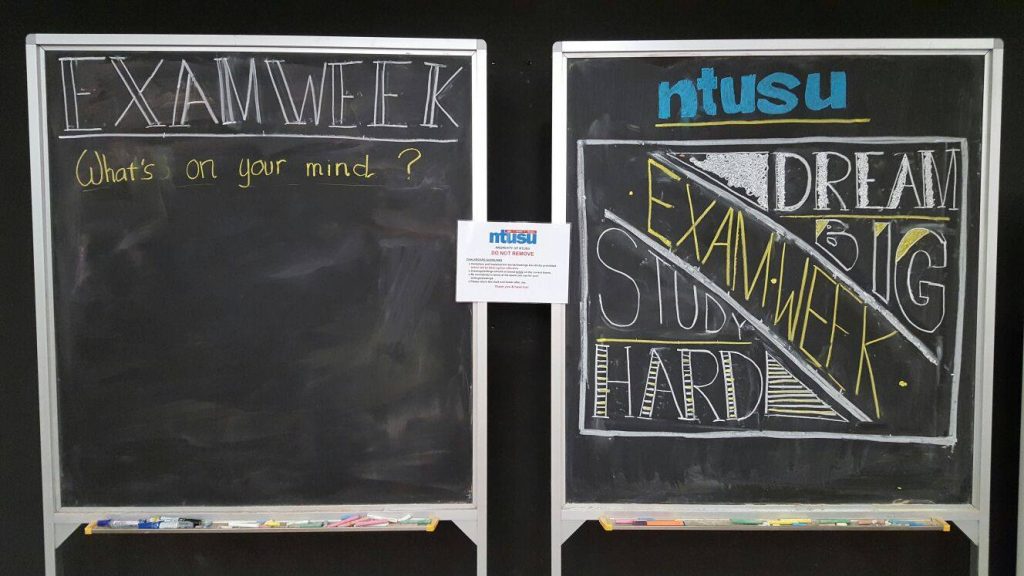 EXAM WEEK
What's on your mind ?
ntusu
PROPERTY OF NTUSU
DO NOT REMOVE
CHALKBOARD GUIDELINES
Thank you & have fun!
ntusu
DREAM
BIG
EXAM·WEEK
STUDY
HARD